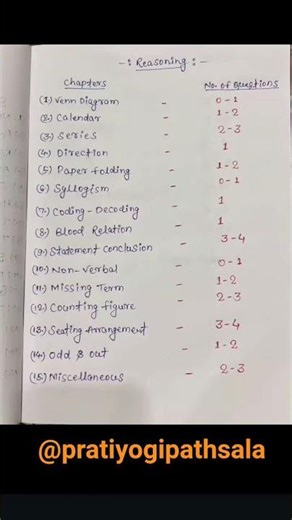 -: Reasoning :-
Chapters No. of Questions
(1.) Venn Diagram - 0-1
(2.) Calendar - 1-2
(3.) Series - 2-3
(4.) Direction - 1
(5.) Paper folding - 1-2
(6.) Syllogism - 0-1
(7.) Coding-Decoding - 1
(8.) Blood Relation - 1
(9.) Statement Conclusion - 3-4
(10.) Non-Verbal - 0-1
(11.) Missing Term - 1-2
(12.) Counting figure - 2-3
(13.) Seating Arrangement - 3-4
(14.) Odd & out - 1-2
(15.) Miscellaneous - 2-3
@pratiyogipathsala